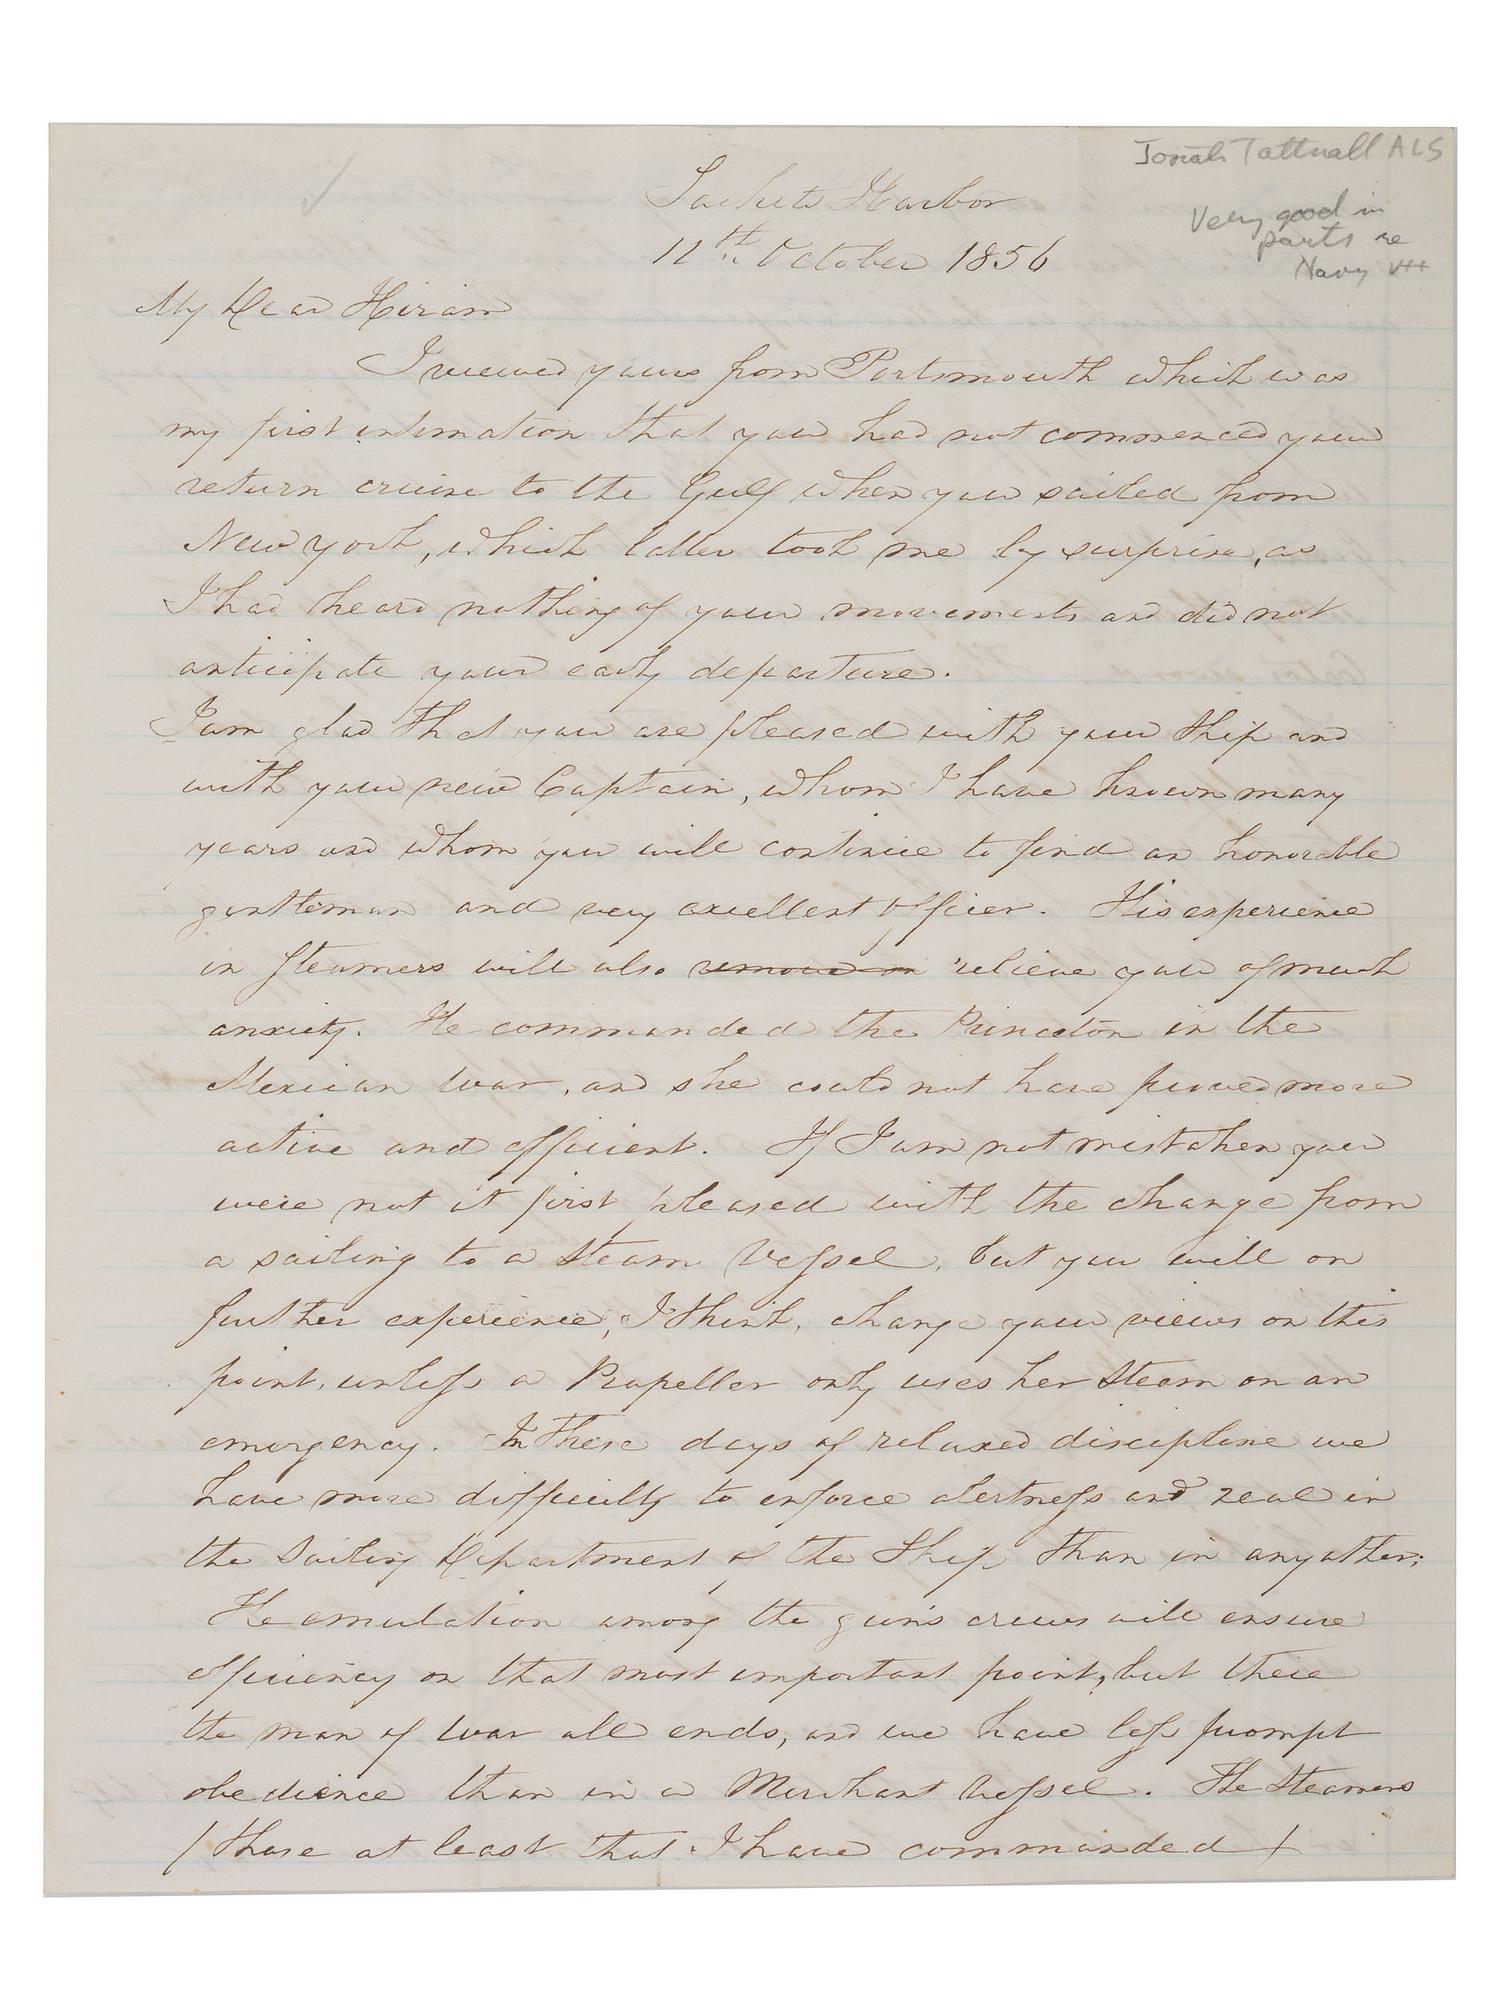 Josiah Tattnall ALS
Very good in
parts re
Navy
Sackets Harbor
11th October 1856
My Dear Hiram
I received yours from Portsmouth which was
my first intimation that you had not commenced your
return cruise to the Gulf when you sailed from
New York, which latter took me by surprise, as
I had heard nothing of your movements and did not
anticipate your early departure.
I am glad that you are pleased with your Ship and
with your new Captain, whom I have known many
years and whom you will continue to find an honorable
gentleman and very excellent officer. His experience
in Steamers will also remove m relieve you of much
anxiety. He commanded the Princeton in the
Mexican War, and she could not have proved more
active and efficient. If I am not mistaken you
were not at first pleased with the change from
a sailing to a Steam Vessel, but you will on
further experience, I think, change your views on this
point, unless a Propeller only uses her Steam on an
emergency. In these days of relaxed discipline we
have more difficulty to enforce alertness and zeal in
the Sailing Department of the Ship than in any other;
The emulation among the guns crews will ensure
efficiency on that most important point, but there
the man of war all ends, and we have less prompt
obedience than in a Merchant Vessel. The Steamers
(those at least that I have commanded)